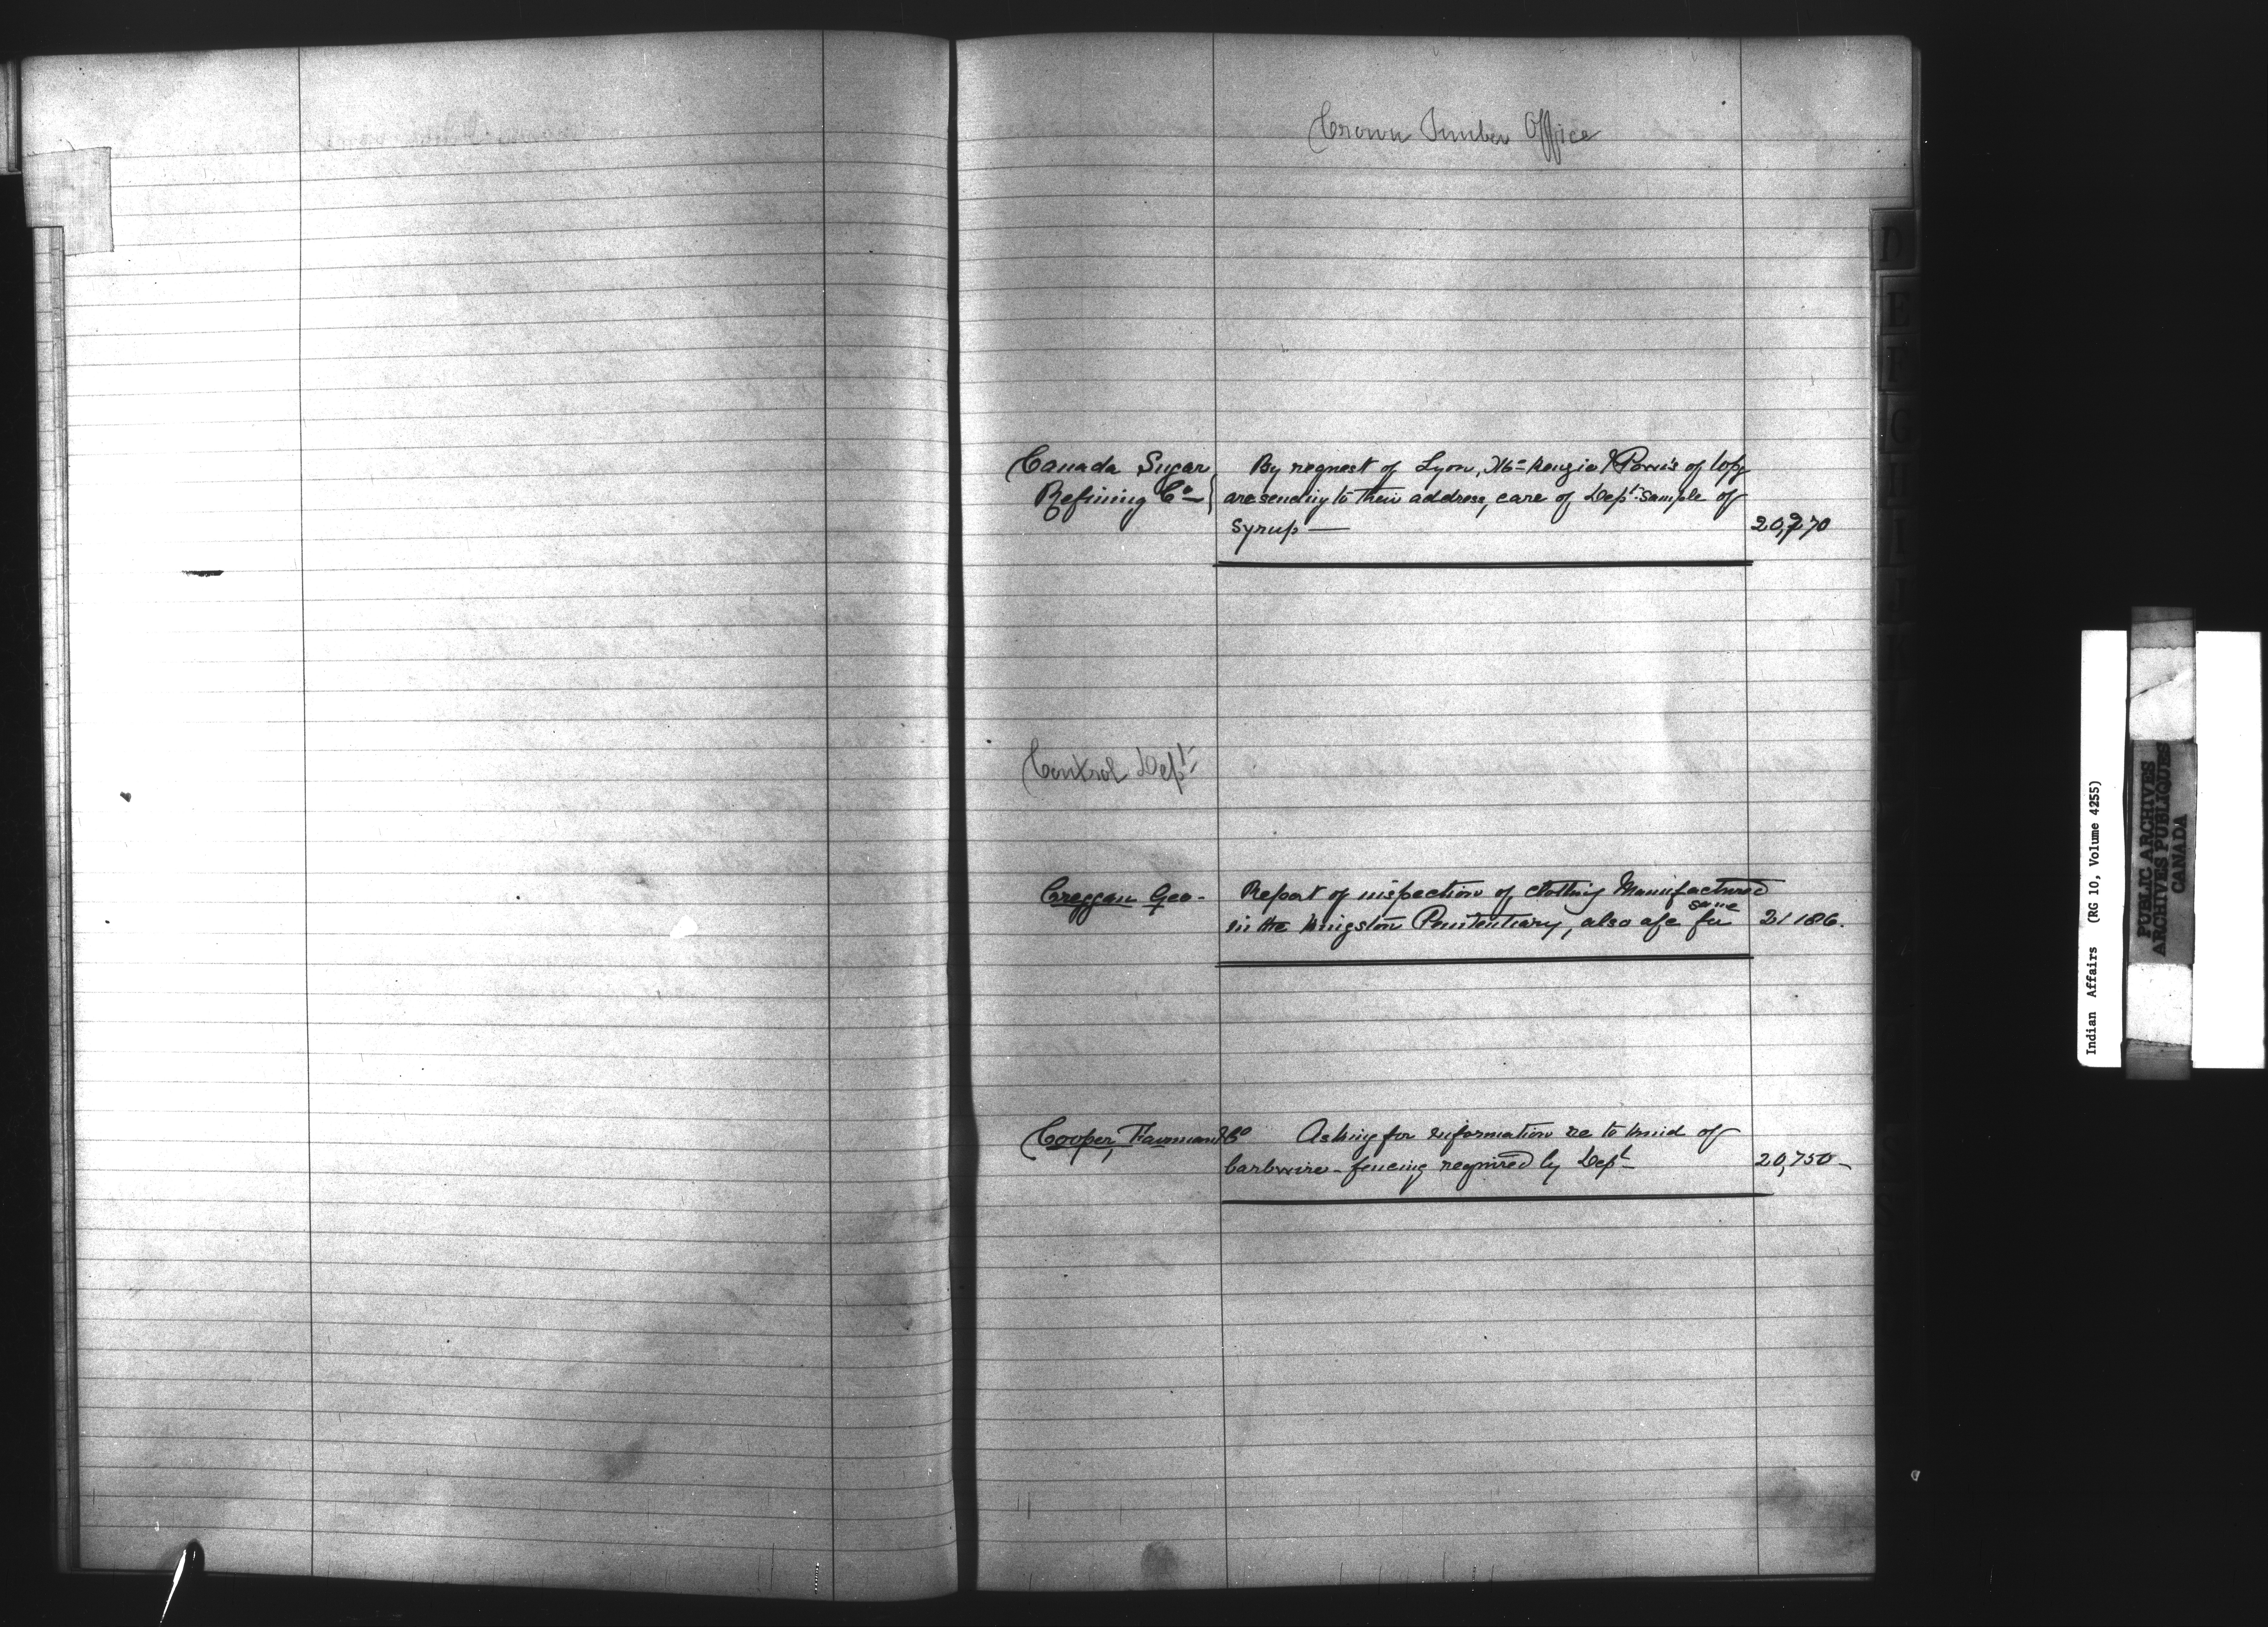 Crown Timber Office
Canada Sugar
Refining Co
By request of Lyon, McKenzie & Powis of Wpg
are sending to their address, care of Dept. sample of
Syrup —
20,270
Control Dept.
Creggan Geo-
Report of inspection of clothing Manufactured
in the Kingston Penitentiary, also a/c for same
21186.
Cooper, Fairman & Co
Asking for information re to kind of
barbwire-fencing required by Dept
20,750-
D
E
F
G
H
I
Indian Affairs (RG 10, Volume 4255)
PUBLIC ARCHIVES
ARCHIVES PUBLIQUES
CANADA